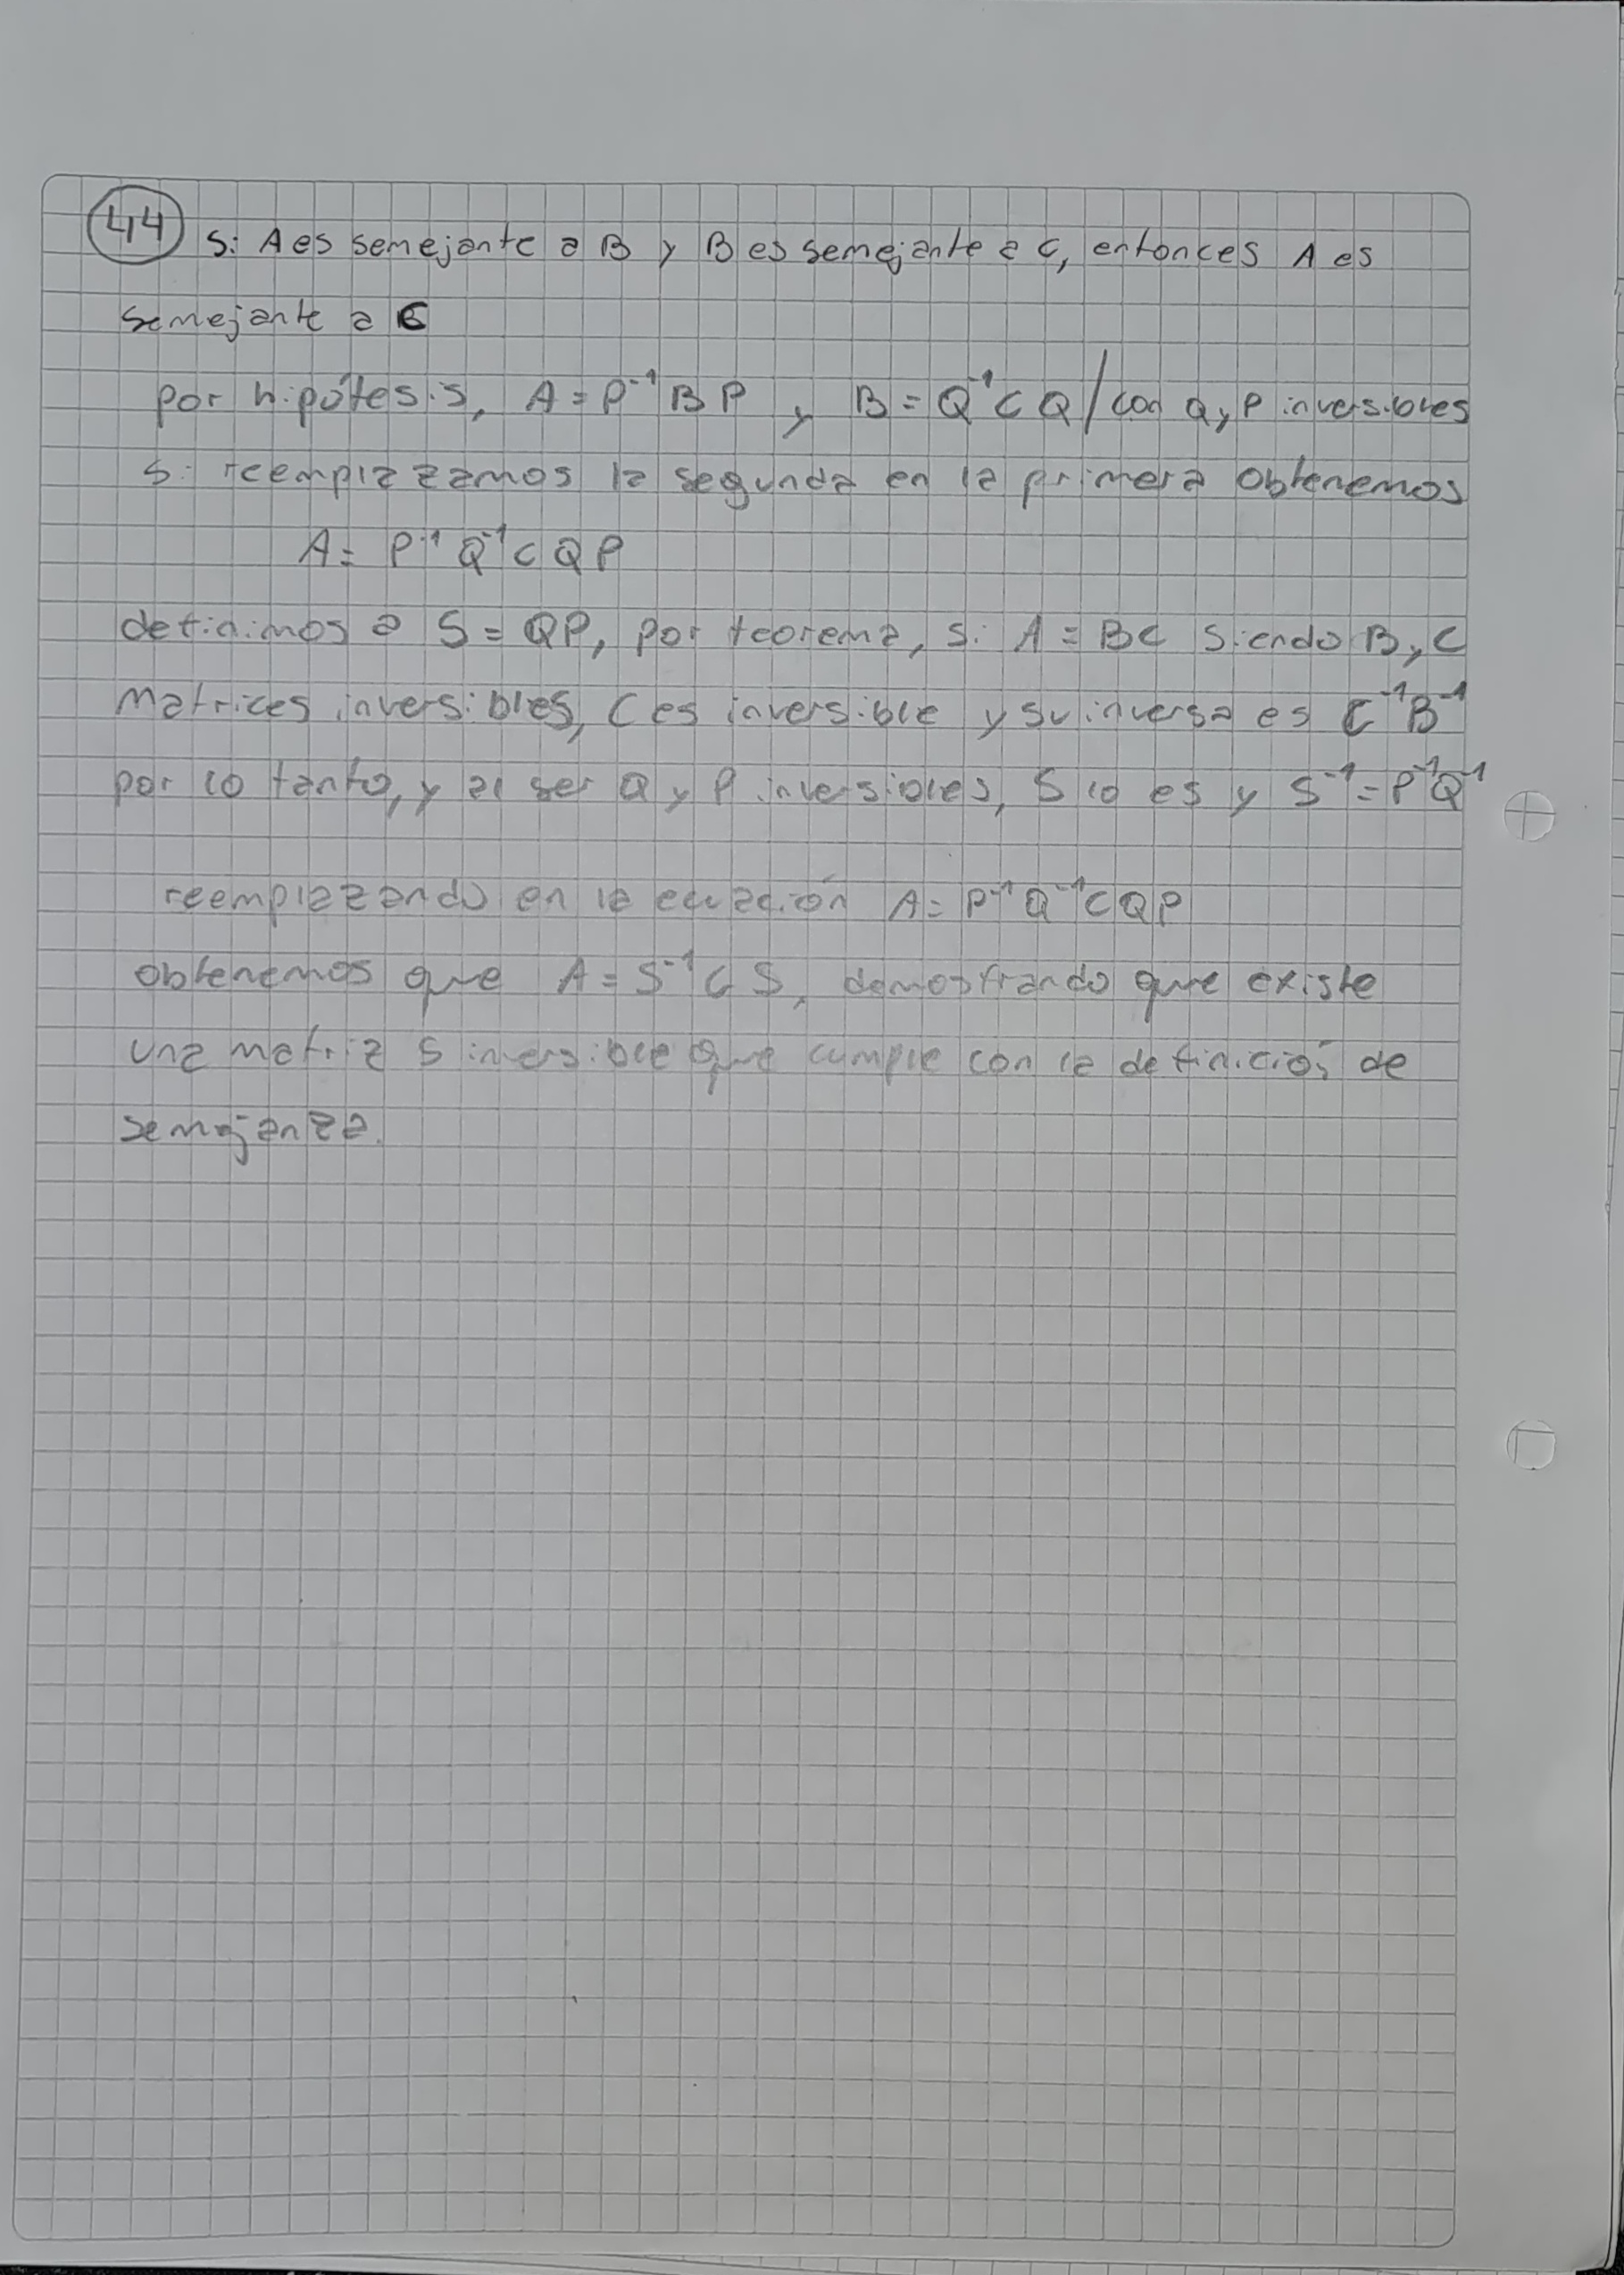 44 Si A es semejante a B y B es semejante a C, entonces A es
semejante a C
por hipótesis, A = P⁻¹BP y B = Q⁻¹CQ / con Q y P inversibles
Si reemplazamos la segunda en la primera obtenemos
A = P⁻¹Q⁻¹CQP
definimos a S = QP, por teorema, si A = BC siendo B y C
matrices inversibles, C es inversible y su inversa es C⁻¹B⁻¹
por lo tanto, y al ser Q y P inversibles, S lo es y S⁻¹ = P⁻¹Q⁻¹
reemplazando en la ecuación A = P⁻¹Q⁻¹CQP
obtenemos que A = S⁻¹CS, demostrando que existe
una matriz S inversible que cumple con la definición de
semejanza.